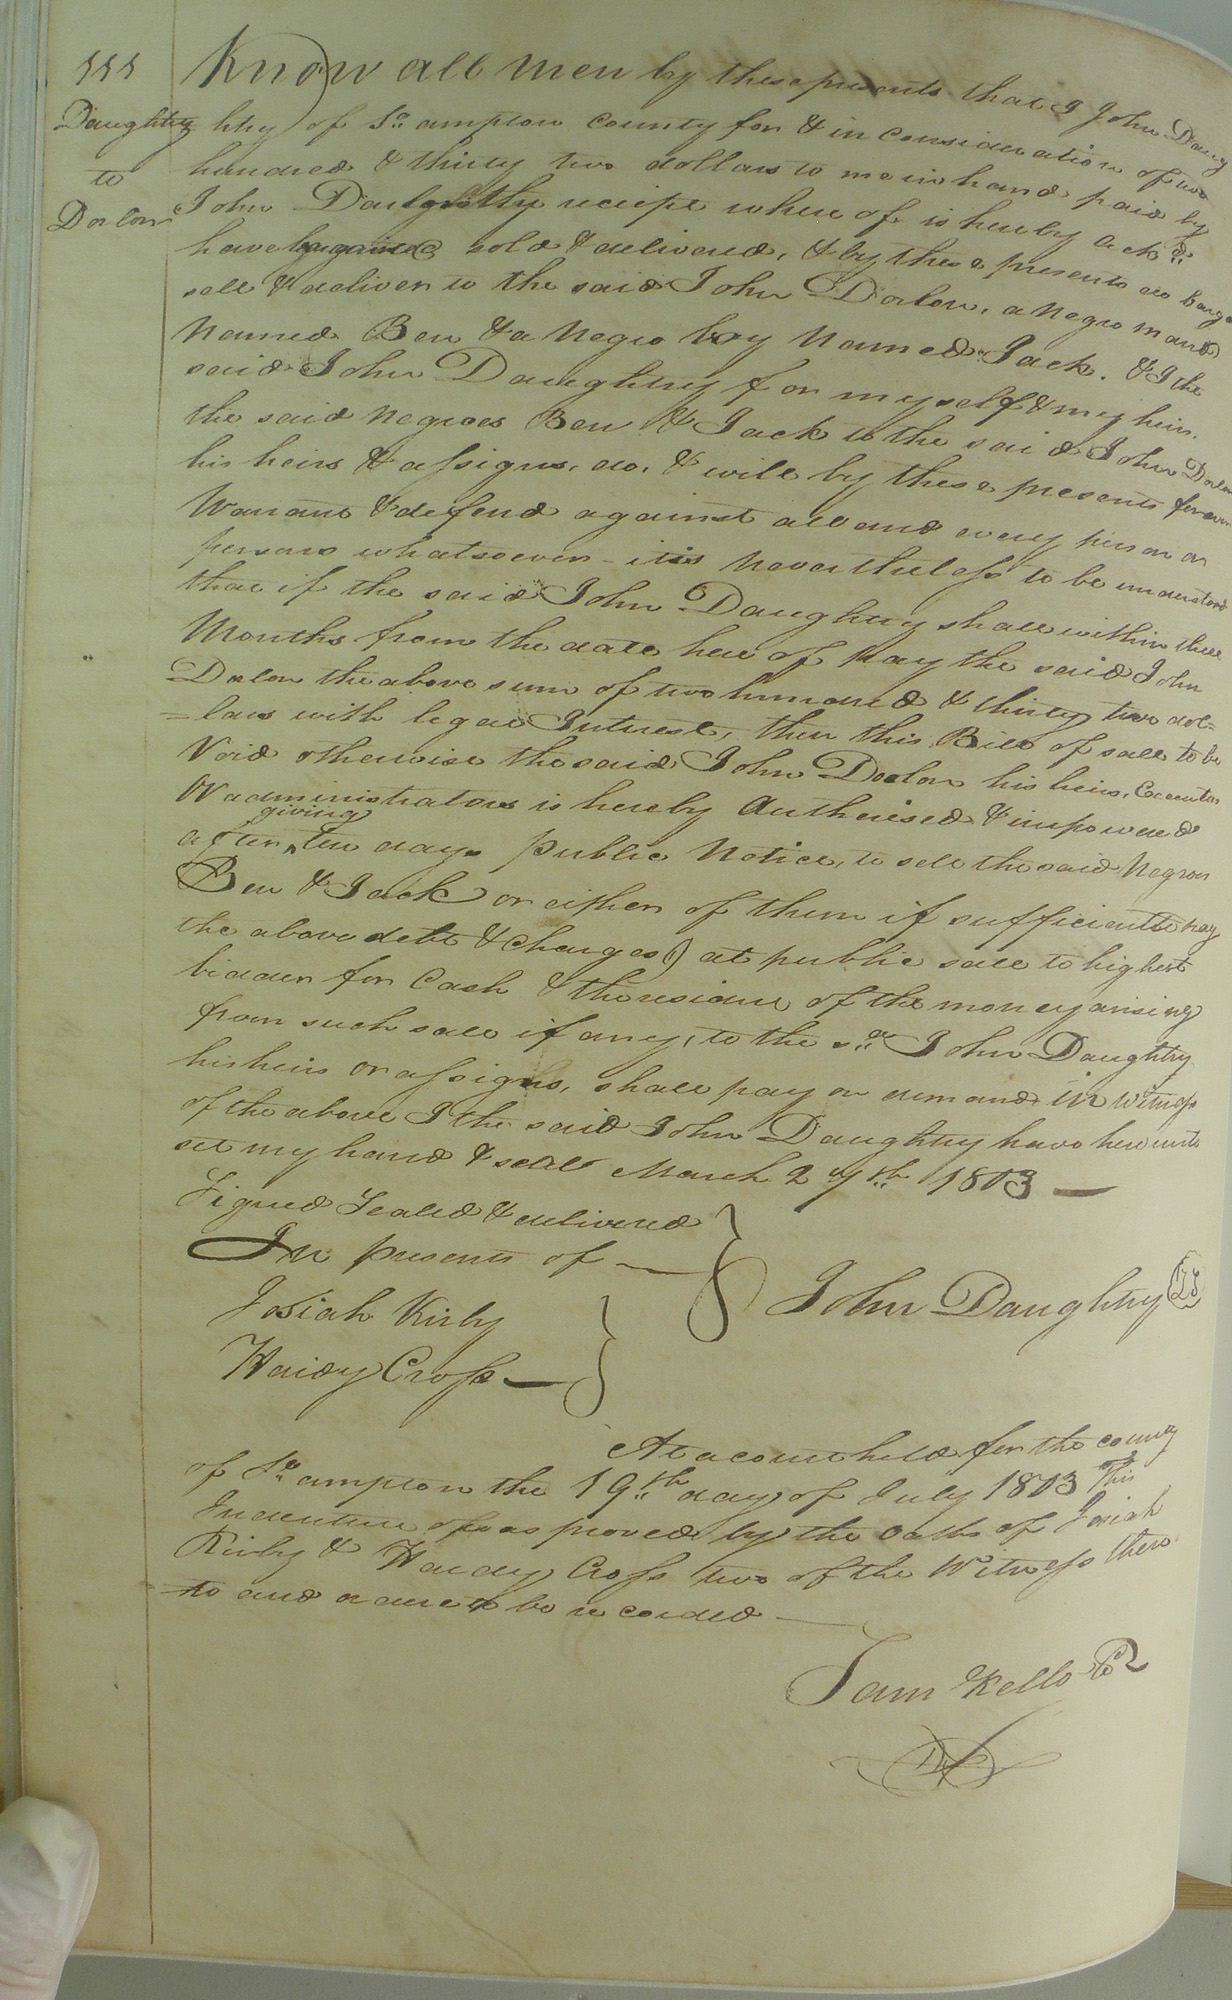 555
Daughtry
to
Dorlon
Know all men by these presents that I John Daug
htry of So. ampton County for & in consideration of two
hundred & thirty two dollars to me in hand paid by
John the reciept where of is hereby ackd.
have bargained sold & delivered, & by these presents do barga
sell & deliver to the said John Dorlon, a negro man
Named Ben & a Negro boy Named Jack. & I the
said John Daughtry for myself & my heirs.
the said negroes Ben & Jack to the said John Dorlon
his heirs & assigns, do, & will by these presents forever
Warrant & defend against all and every person or
persons whatsoever - it is nevertheless to be understood
that if the said John Daughtry shall within three
Months from the date here of pay the said John
Dorlon the above sum of two hundred & thirty two dol=
=lars with legal Interest, then this Bill of sale to be
Void otherwise the said John Dorlon his heirs, Executors
Or administrators is hereby Autherised & impowered
giving
after ^ ten days public Notice, to sell the said Negroes
Ben & Jack or either of them if sufficient to pay
the above debt & Charges) at public sale to highest
bidder for Cash & the residue of the money arising
from such sale if any, to the sd. John Daughtry
his heirs or assigns, shall pay on demand in Witness
of the above I the said John Daughtry have hereunto
set my hand & seal March 27th. 1813 —
Signed Sealed & delivered
In presents of —
John Daughtry LS
Josiah Kirby
Hardy Cross —
At a court held for the county
of So. ampton the 19th. day of July 1813 This
Indenture was proved by the oaths of Josiah
Kirby & Hardy Cross two of the Witness there
to and ordered to be recorded —
Sam Kello